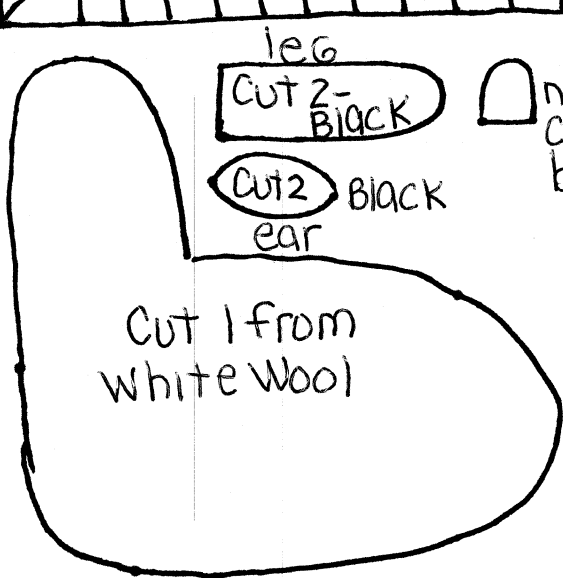 leG
Cut 2-
Black
Cut 2
Black
ear
Cut 1 from
White Wool